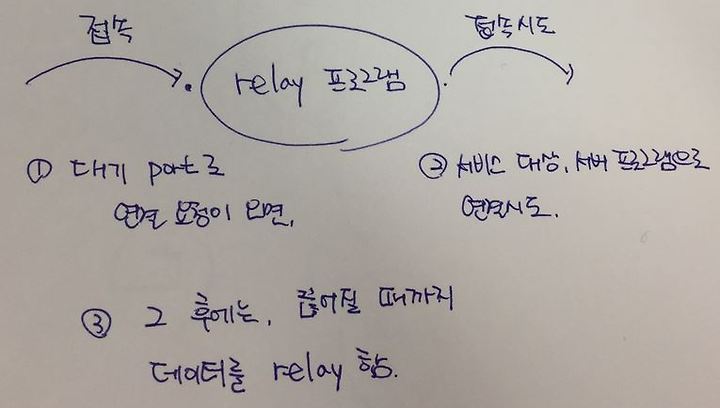 접속
접속시도
relay 프로그램
① 대기 port로
연결 요청이 오면,
② 서비스 대상, 서버 프로그램으로
연결시도.
③ 그 후에는, 끊어질 때까지
데이터를 relay 함.